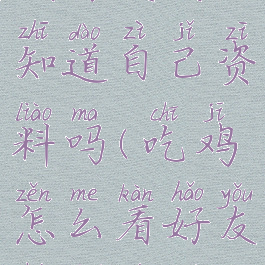 zhī dào zì jǐ zī
知道自己资
liào ma chī jī
料吗(吃鸡
zěn me kàn hǎo yǒu
怎么看好友